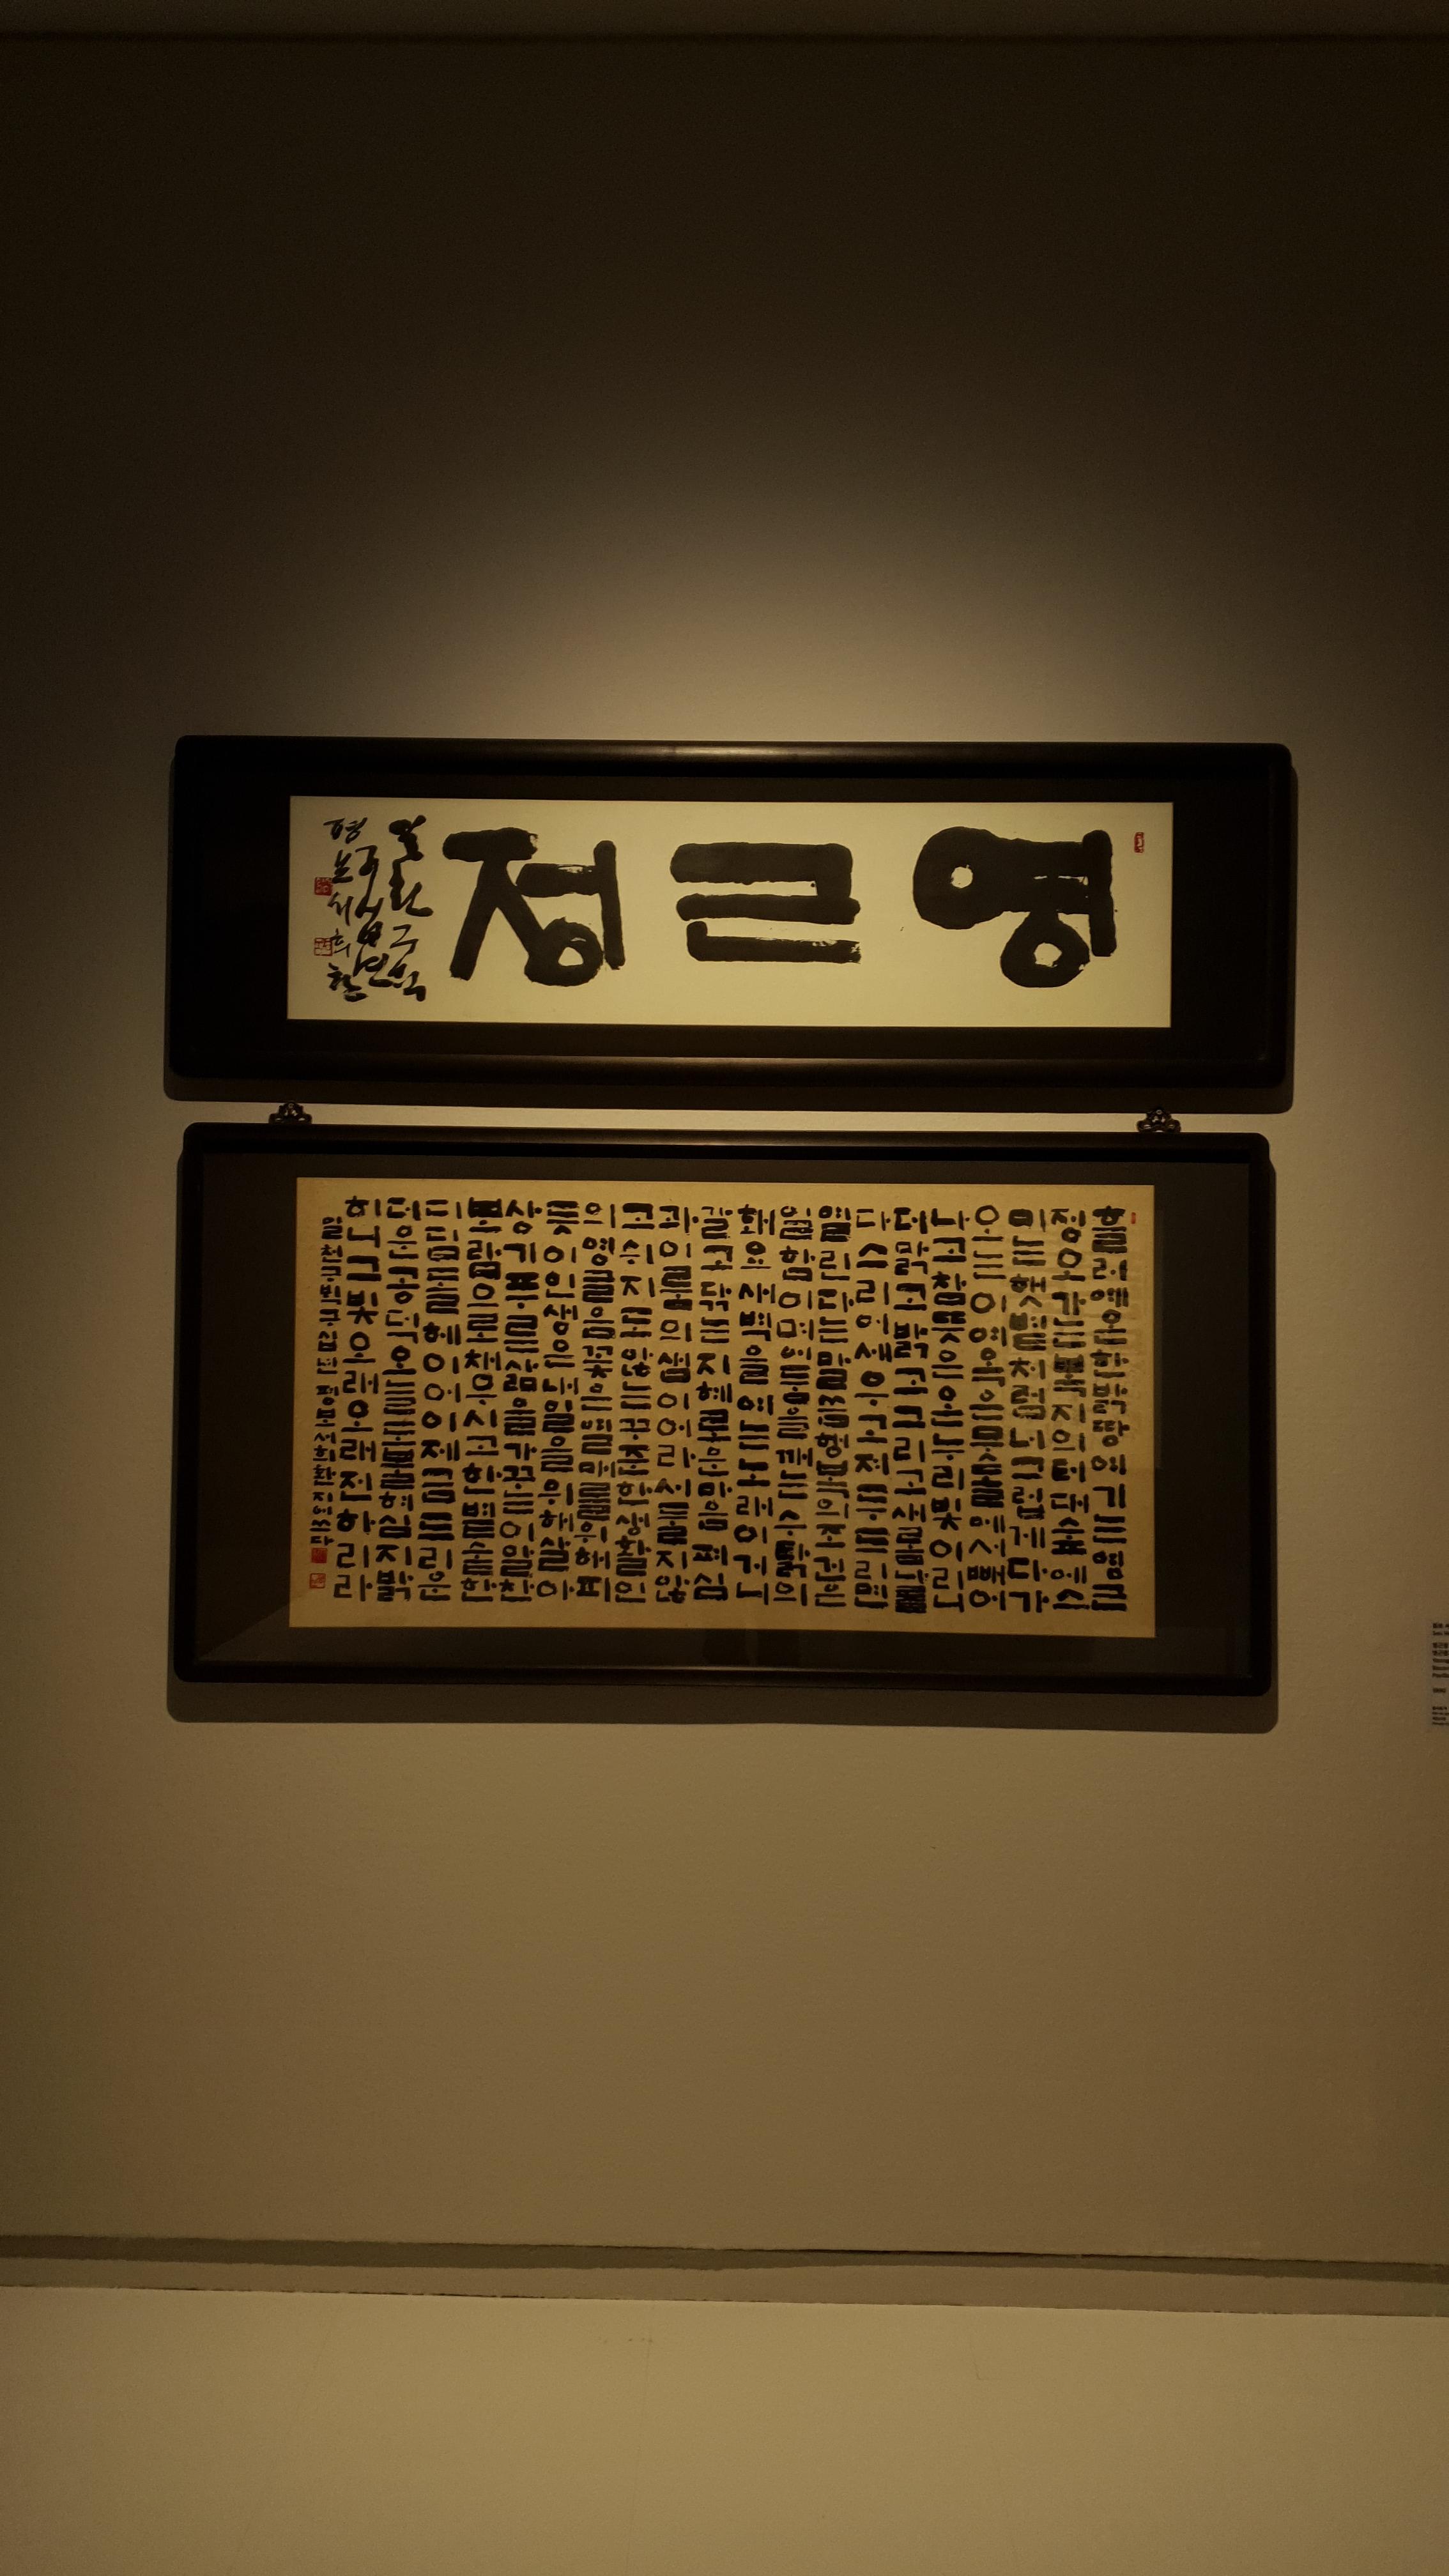 영근정
평보서희환
흘러예온한밝땅여기는영근
정오가는뭇지의터대숲에스
미는햇볕처럼너그럽게다가
오는이여옥은못물에서빼어
나고참뜻은온누리빛이리니
더맑고밝고그리고새
다스리어새우고져두드리면
열린다는말씀행복의조건은
일함이며어둠을깨는수탉의
홰요새벽을여는노래이거니
갈고닦는지혜로운마음펴심
과이룸의샘이어라서둘지않
고쉬지도않는꾸준한생활인
의영글음꽃은열매를위해피
듯이인생은내일을위해살아
상기푸른삶을가꾸는이알찬
보람으로채우시고한별술한
디딤돌헤이어이제금드리운
더은공덕오는 심지밝
히니그빛오래오래전하리라
일천구백구십년평보서희환지어쓰다